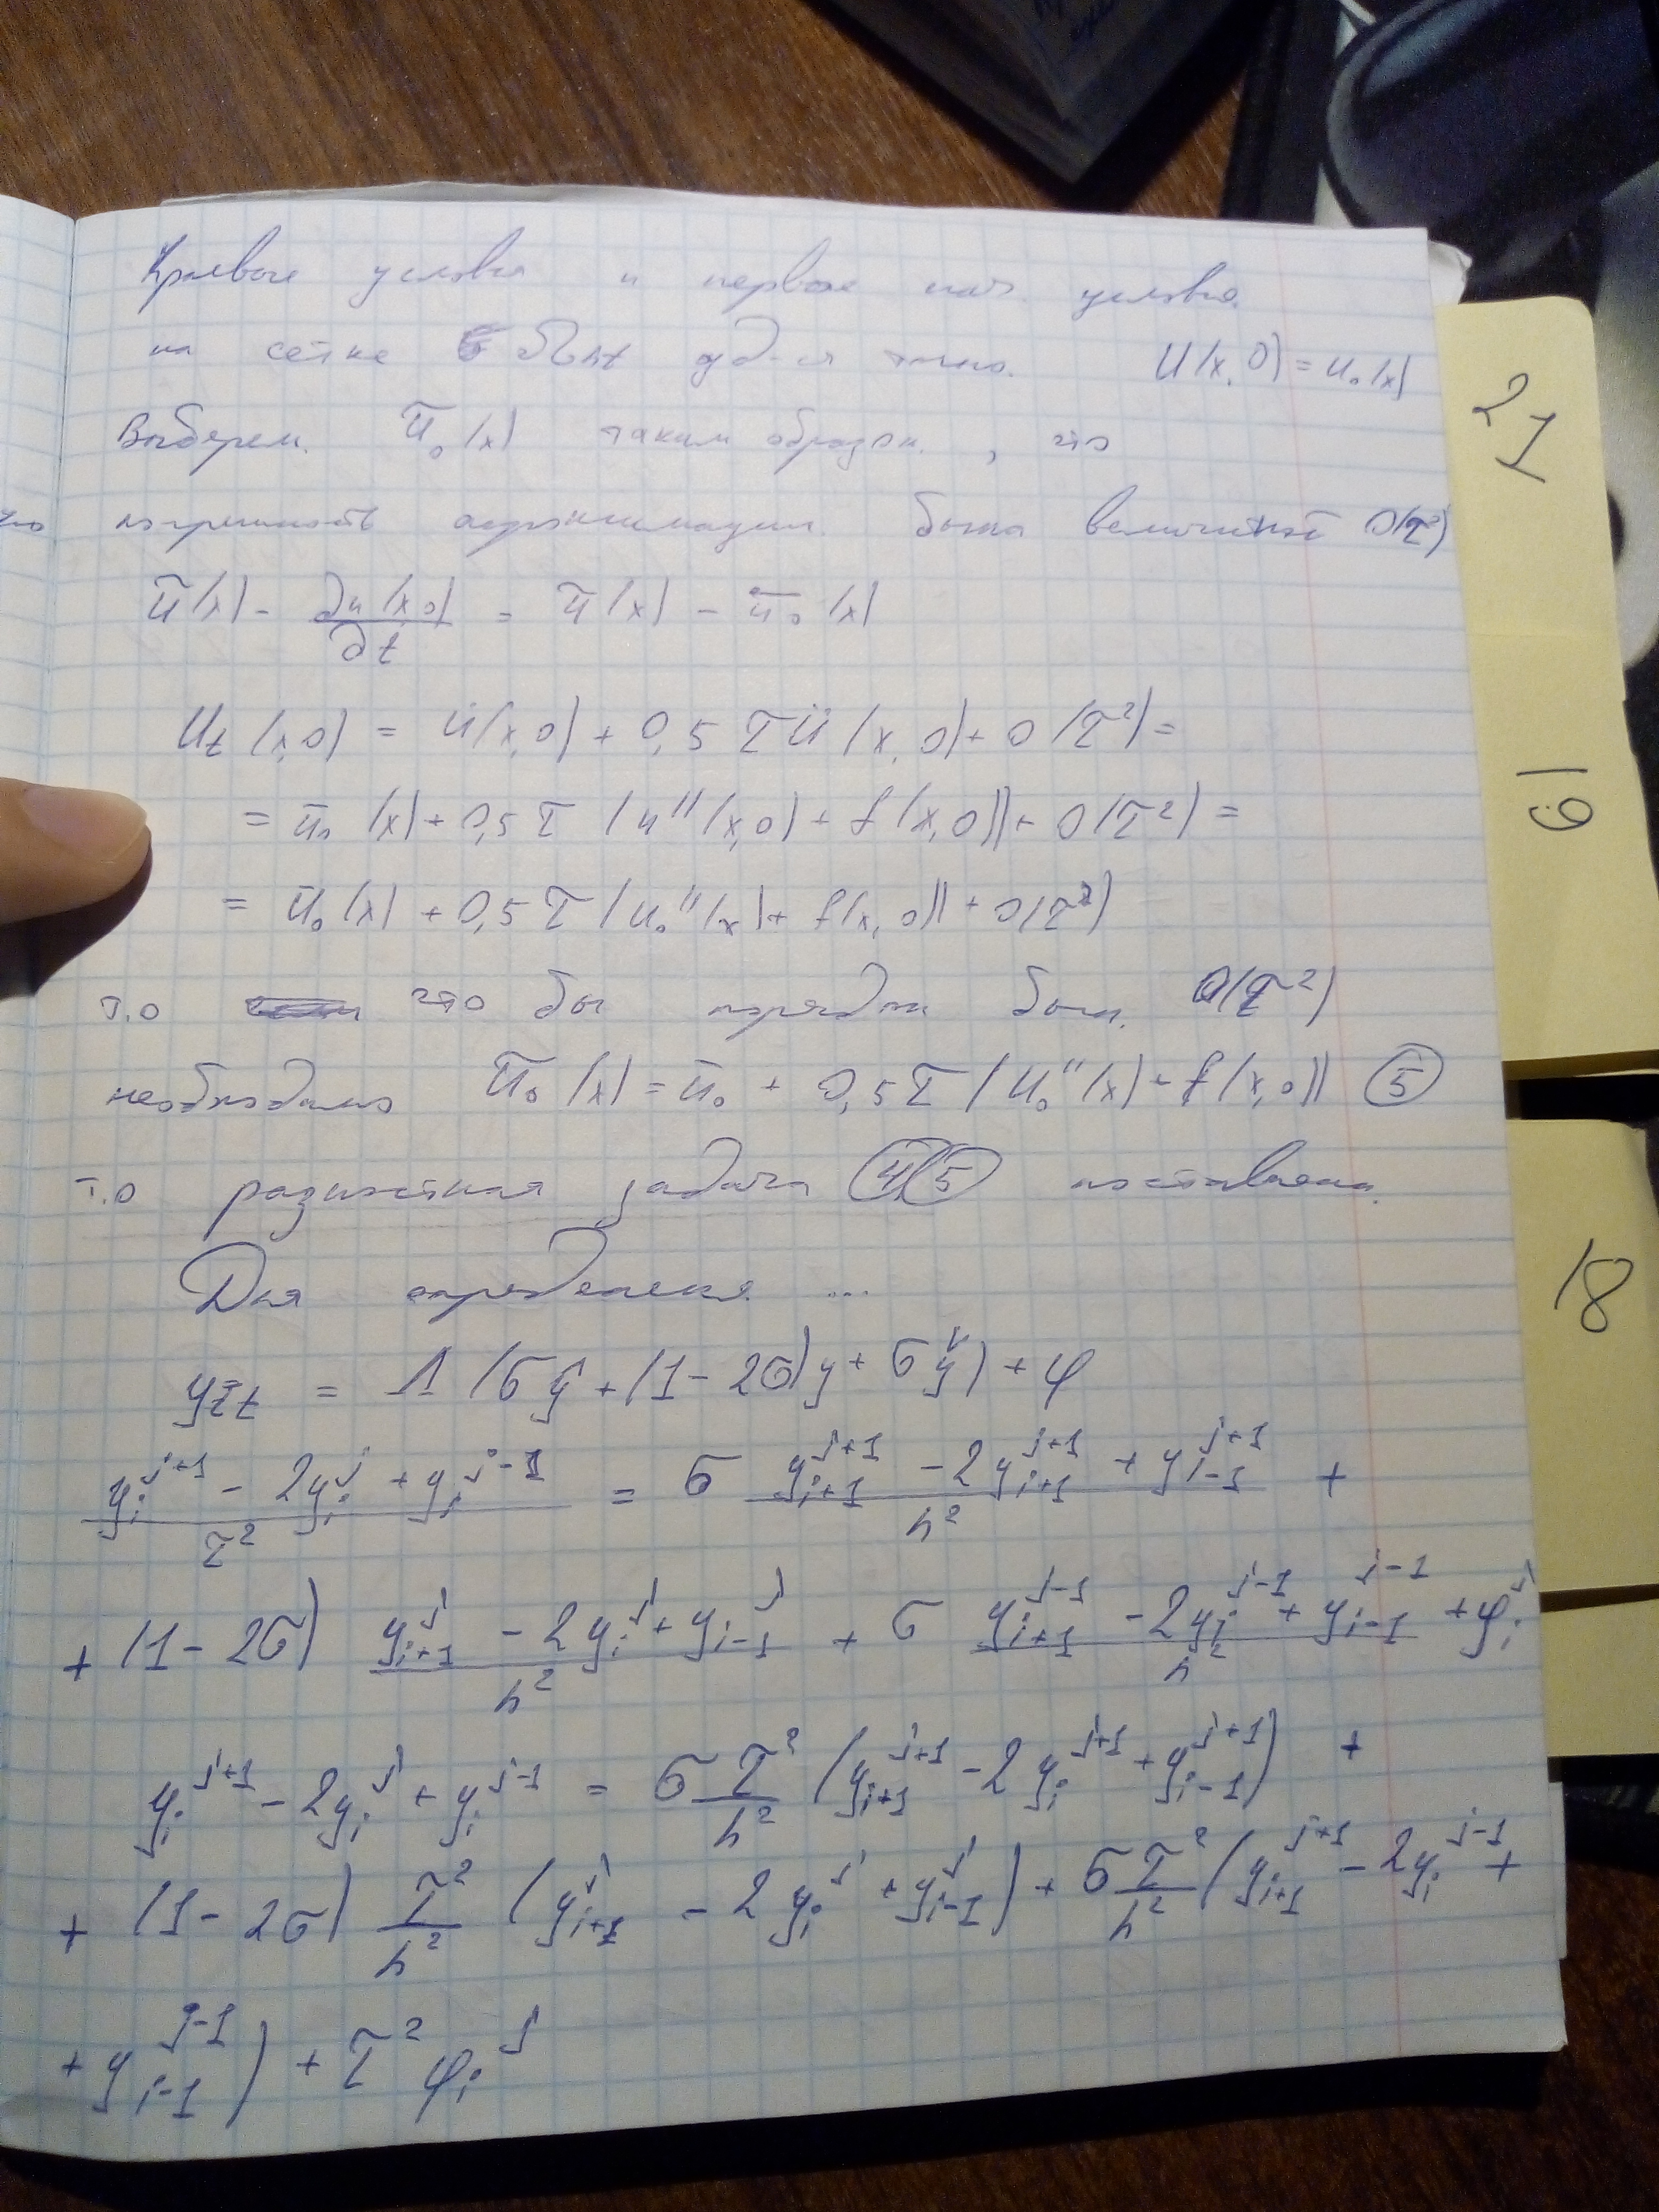 Краевые условия и первое нач. условие
на сетке ω̄hτ уд-ся точно. U(x,0) = u₀(x)
Выберем ũ₀(x) таким образом, что
погрешность аппроксимации была величиной O(τ²)
ũ(x) - ∂u(x,0)/∂t = ũ(x) - ū₀(x)
Ut(x,0) = u̇(x,0) + 0,5τü(x,0) + O(τ²) =
= ū₀(x) + 0,5τ(u''(x,0) + f(x,0)) + O(τ²) =
= ū₀(x) + 0,5τ(u₀''(x) + f(x,0)) + O(τ²)
т.о что бы порядок был O(τ²)
необходимо ũ₀(x) = ū₀ + 0,5τ(u₀''(x) + f(x,0)) (5)
т.о разностная задача (4)(5) поставлена.
Для определения ...
y_t̄t = Λ(σŷ + (1-2σ)y + σy̌) + φ
(y_i^{j+1} - 2y_i^j + y_i^{j-1})/τ² = σ (y_{i+1}^{j+1} - 2y_{i+1}^{j+1} + y_{i-1}^{j+1})/h² +
+ (1-2σ) (y_{i+1}^j - 2y_i^j + y_{i-1}^j)/h² + σ (y_{i+1}^{j-1} - 2y_i^{j-1} + y_{i-1}^{j-1})/h² + φ_i^j
y_i^{j+1} - 2y_i^j + y_i^{j-1} = σ τ²/h² (y_{i+1}^{j+1} - 2y_i^{j+1} + y_{i-1}^{j+1}) +
+ (1-2σ) τ²/h² (y_{i+1}^j - 2y_i^j + y_{i-1}^j) + σ τ²/h² (y_{i+1}^{j+1} - 2y_i^{j-1} +
+ y_{i-1}^{j-1}) + τ² φ_i^j
21
19
18